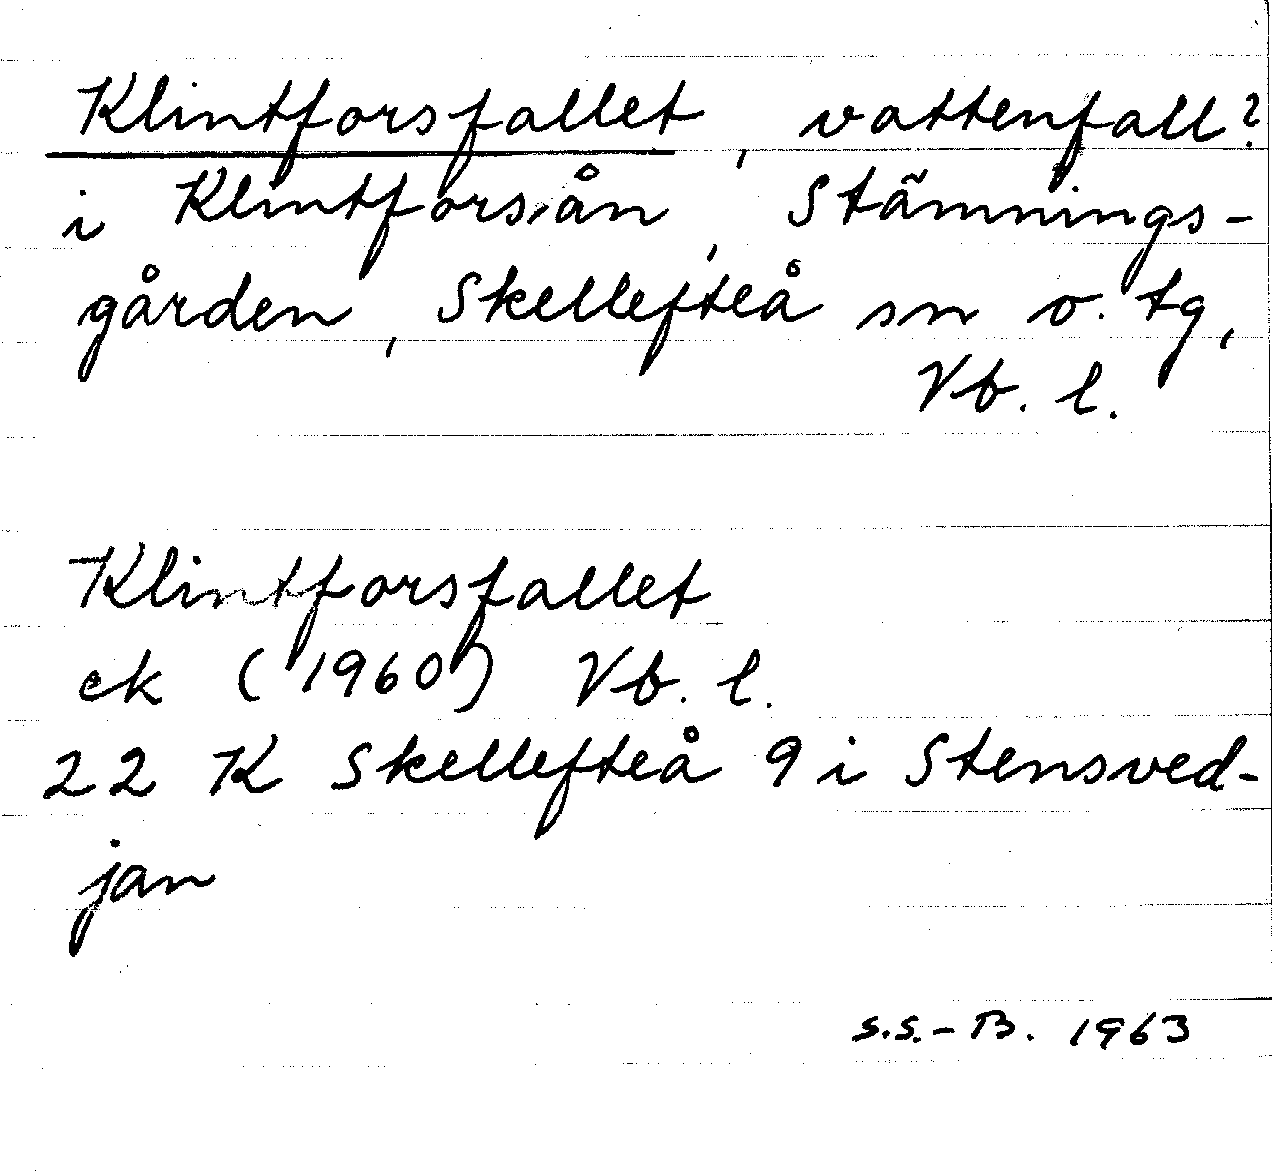 Klintforsfallet, vattenfall?
i Klintforsån, Stämnings-
gården, Skellefteå sn o. tg,
Vb. l.
Klintforsfallet
ek (1960) Vb. l.
22 K Skellefteå 9 i Stensved-
jan
S.S.-B. 1963